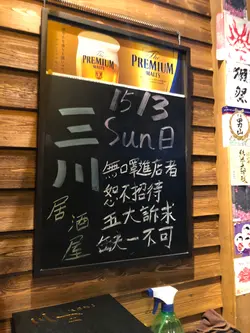 The PREMIUM MALT'S
The PREMIUM MALT'S
15/3
Sun日
三川
居酒屋
無口罩進店者
恕不招待
五大訴求
缺一不可
獺祭